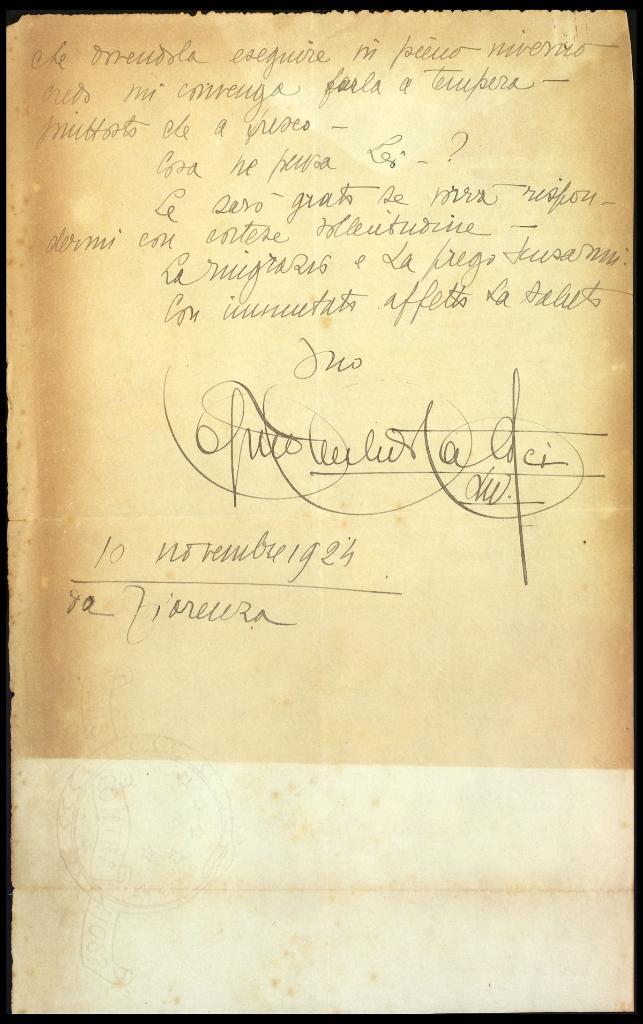 che dovendola eseguire in pieno inverno
credo mi convenga farla a tempera —
piuttosto che a fresco —
Cosa ne pensa Lei — ?
Le sarò grato se vorrà rispon-
dermi con cortese sollecitudine —
La ringrazio e La prego scusarmi.
Con immutato affetto La saluto
Suo
10 novembre 1924
da Fiorenza
CONTRA